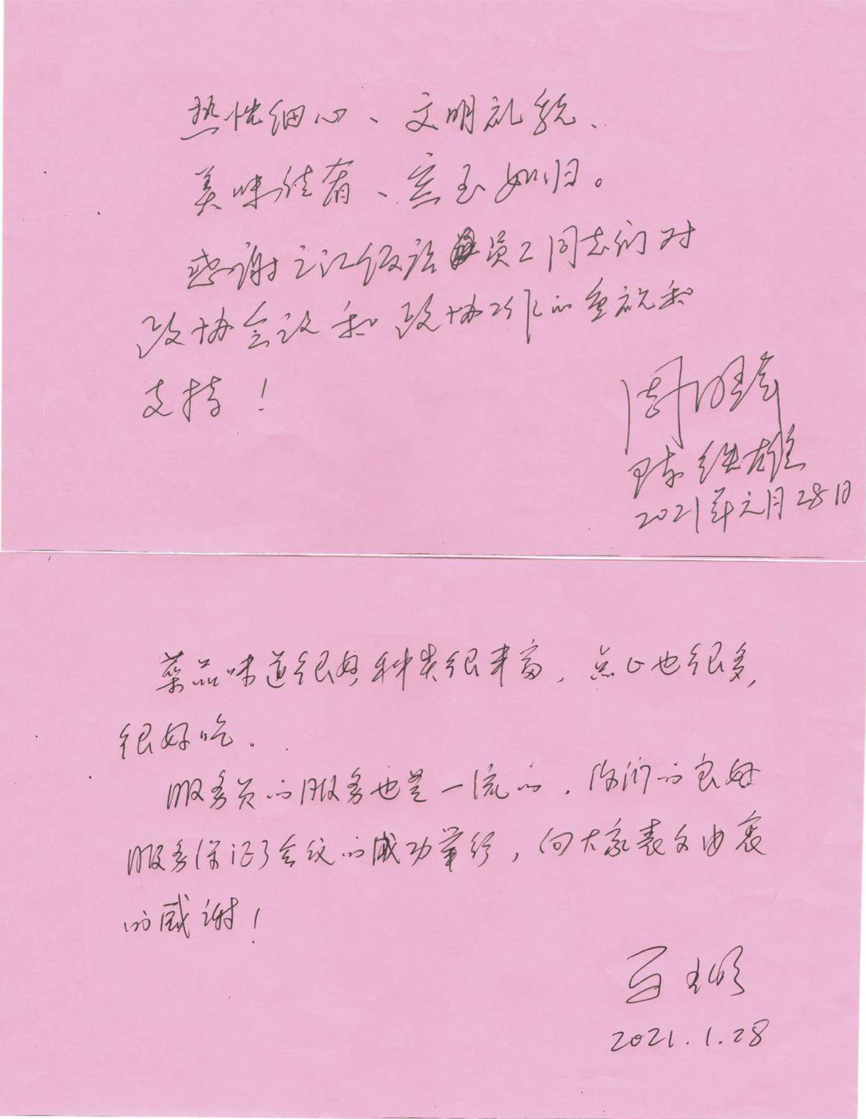 热忱细心、文明礼貌、
美味佳肴、宾至如归。
感谢之江饭店员工同志们对
政协会议和政协工作的重视和
支持！
陈继雄
2021年元月28日
菜品味道很好种类很丰富，点心也很多，
很好吃.
服务员的服务也是一流的，你们的良好
服务保证了会议的成功举行，向大家表示由衷
的感谢！
2021.1.28